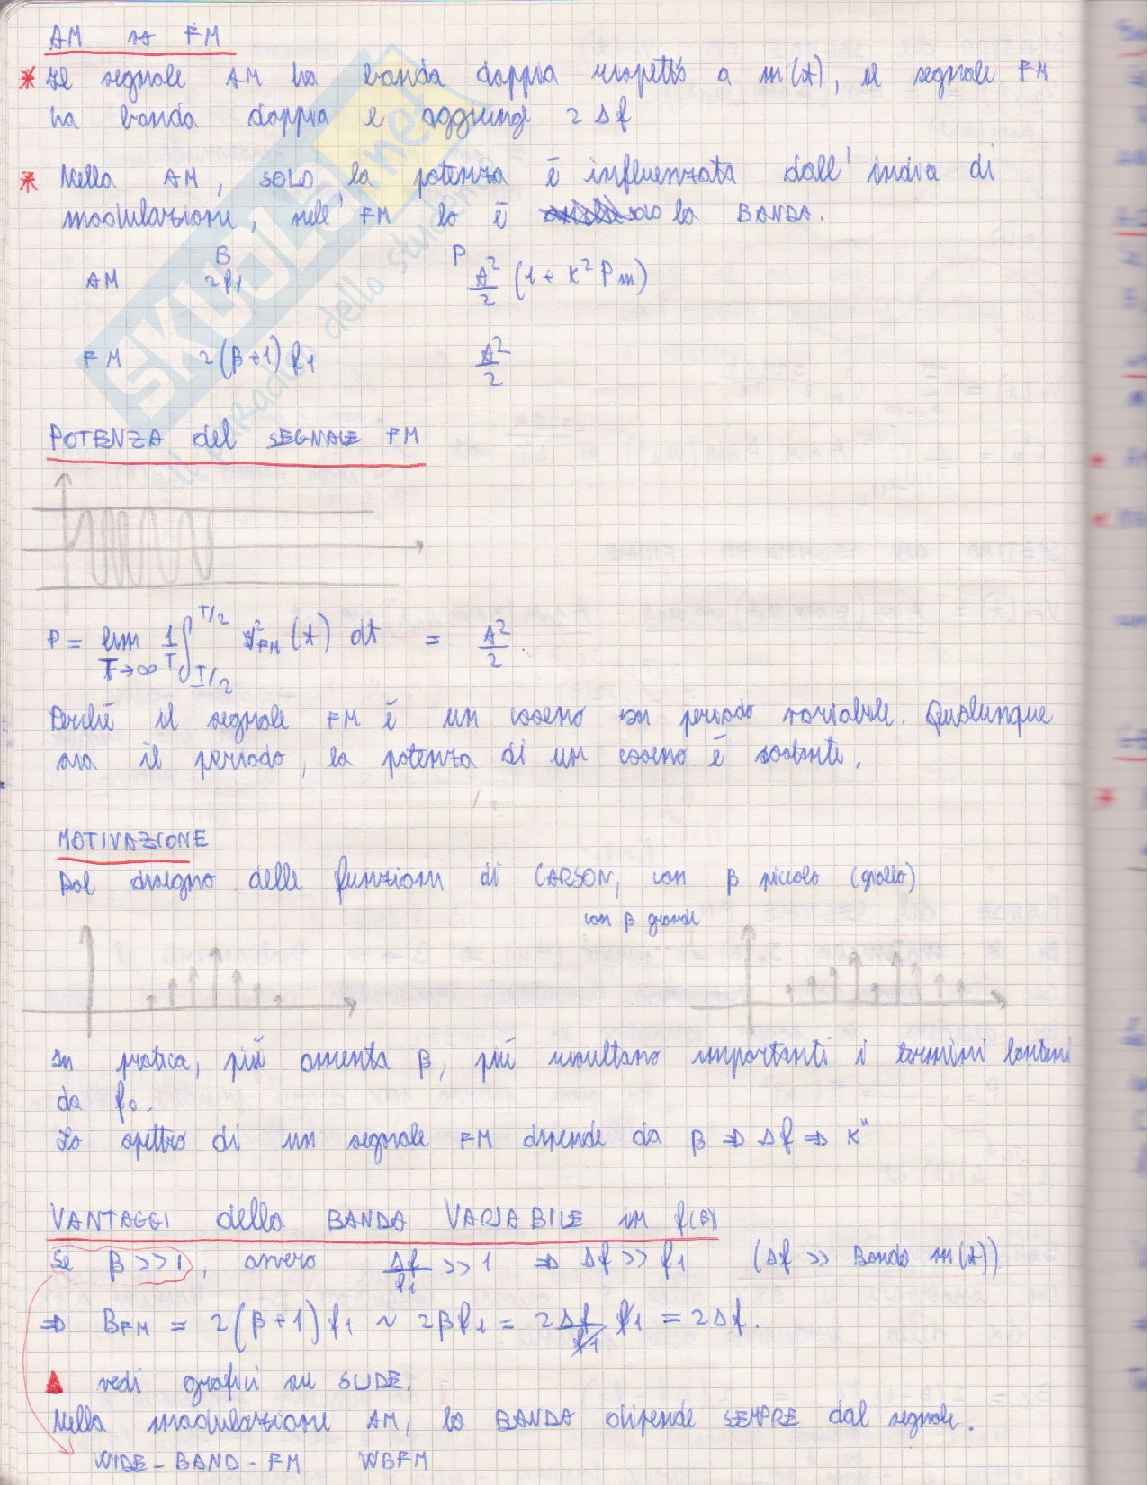 AM vs FM
* Il segnale AM ha banda doppia rispetto a m(t), il segnale FM
ha banda doppia e aggiunge 2Δf
* Nella AM, SOLO la potenza è influenzata dall'indice di
modulazione, nell'FM lo è la BANDA.
B P
AM 2f₁ A²/2 (1 + K² Pm)
FM 2(β+1)f₁ A²/2
POTENZA del SEGNALE FM
P = lim T→∞ 1/T ∫_{-T/2}^{T/2} s²FM(t) dt = A²/2.
Perché il segnale FM è un coseno con periodo variabile. Qualunque
sia il periodo, la potenza di un coseno è costante.
MOTIVAZIONE
Dal disegno delle funzioni di CARSON, con β piccolo (giallo)
con β grande
In pratica, più aumenta β, più risultano importanti i termini lontani
da f₀.
Lo spettro di un segnale FM dipende da β ⇒ Δf ⇒ K"
VANTAGGI della BANDA VARIABILE in f(β)
Se β >> 1, ovvero Δf/f₁ >> 1 ⇒ Δf >> f₁ (Δf >> Banda m(t))
⇒ BFM = 2(β+1)f₁ ~ 2βf₁ = 2Δf/f₁ f₁ = 2Δf.
vedi grafici su SLIDE.
Nella modulazione AM, la BANDA dipende SEMPRE dal segnale.
WIDE-BAND-FM WBFM
SKUOLA.net
il paradiso dello studente